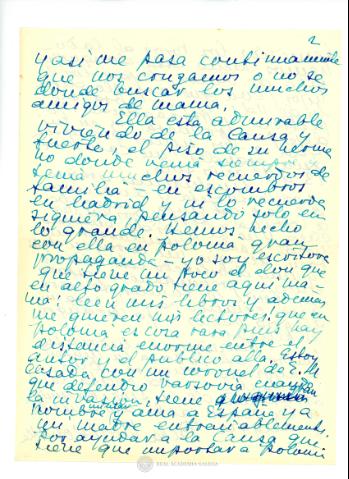 2
y así me pasa continuamente
que nos conozcamos o no se
donde buscar los muchos
amigos de mama.
Ella esta admirable
viviendo de la Causa y
fuerte, el piso de su
no donde venia siempre y
tenia muchos recuerdos de
familia — en escombros
en Madrid y ni lo recuerda
siquiera, pensando solo en
lo grande. Hemos hecho
con ella en Polonia gran
propaganda — yo soy escritora
que tiene un poco el don que
en alto grado tiene aqui ma-
ma: leen mis libros y ademas
me quieren mis lectores, que en
Polonia es cosa rara pues hay
distancia enorme entre el
autor y el publico alla. Estoy
casada con un coronel de E. M.
que defendio Varsovia cuando
la invasion, tiene gran
nombre militar y ama a España y a
mi madre entrañablemente.
Por ayudar a la Causa que
tiene que importar a Poloni
REAL ACADEMIA GALEGA